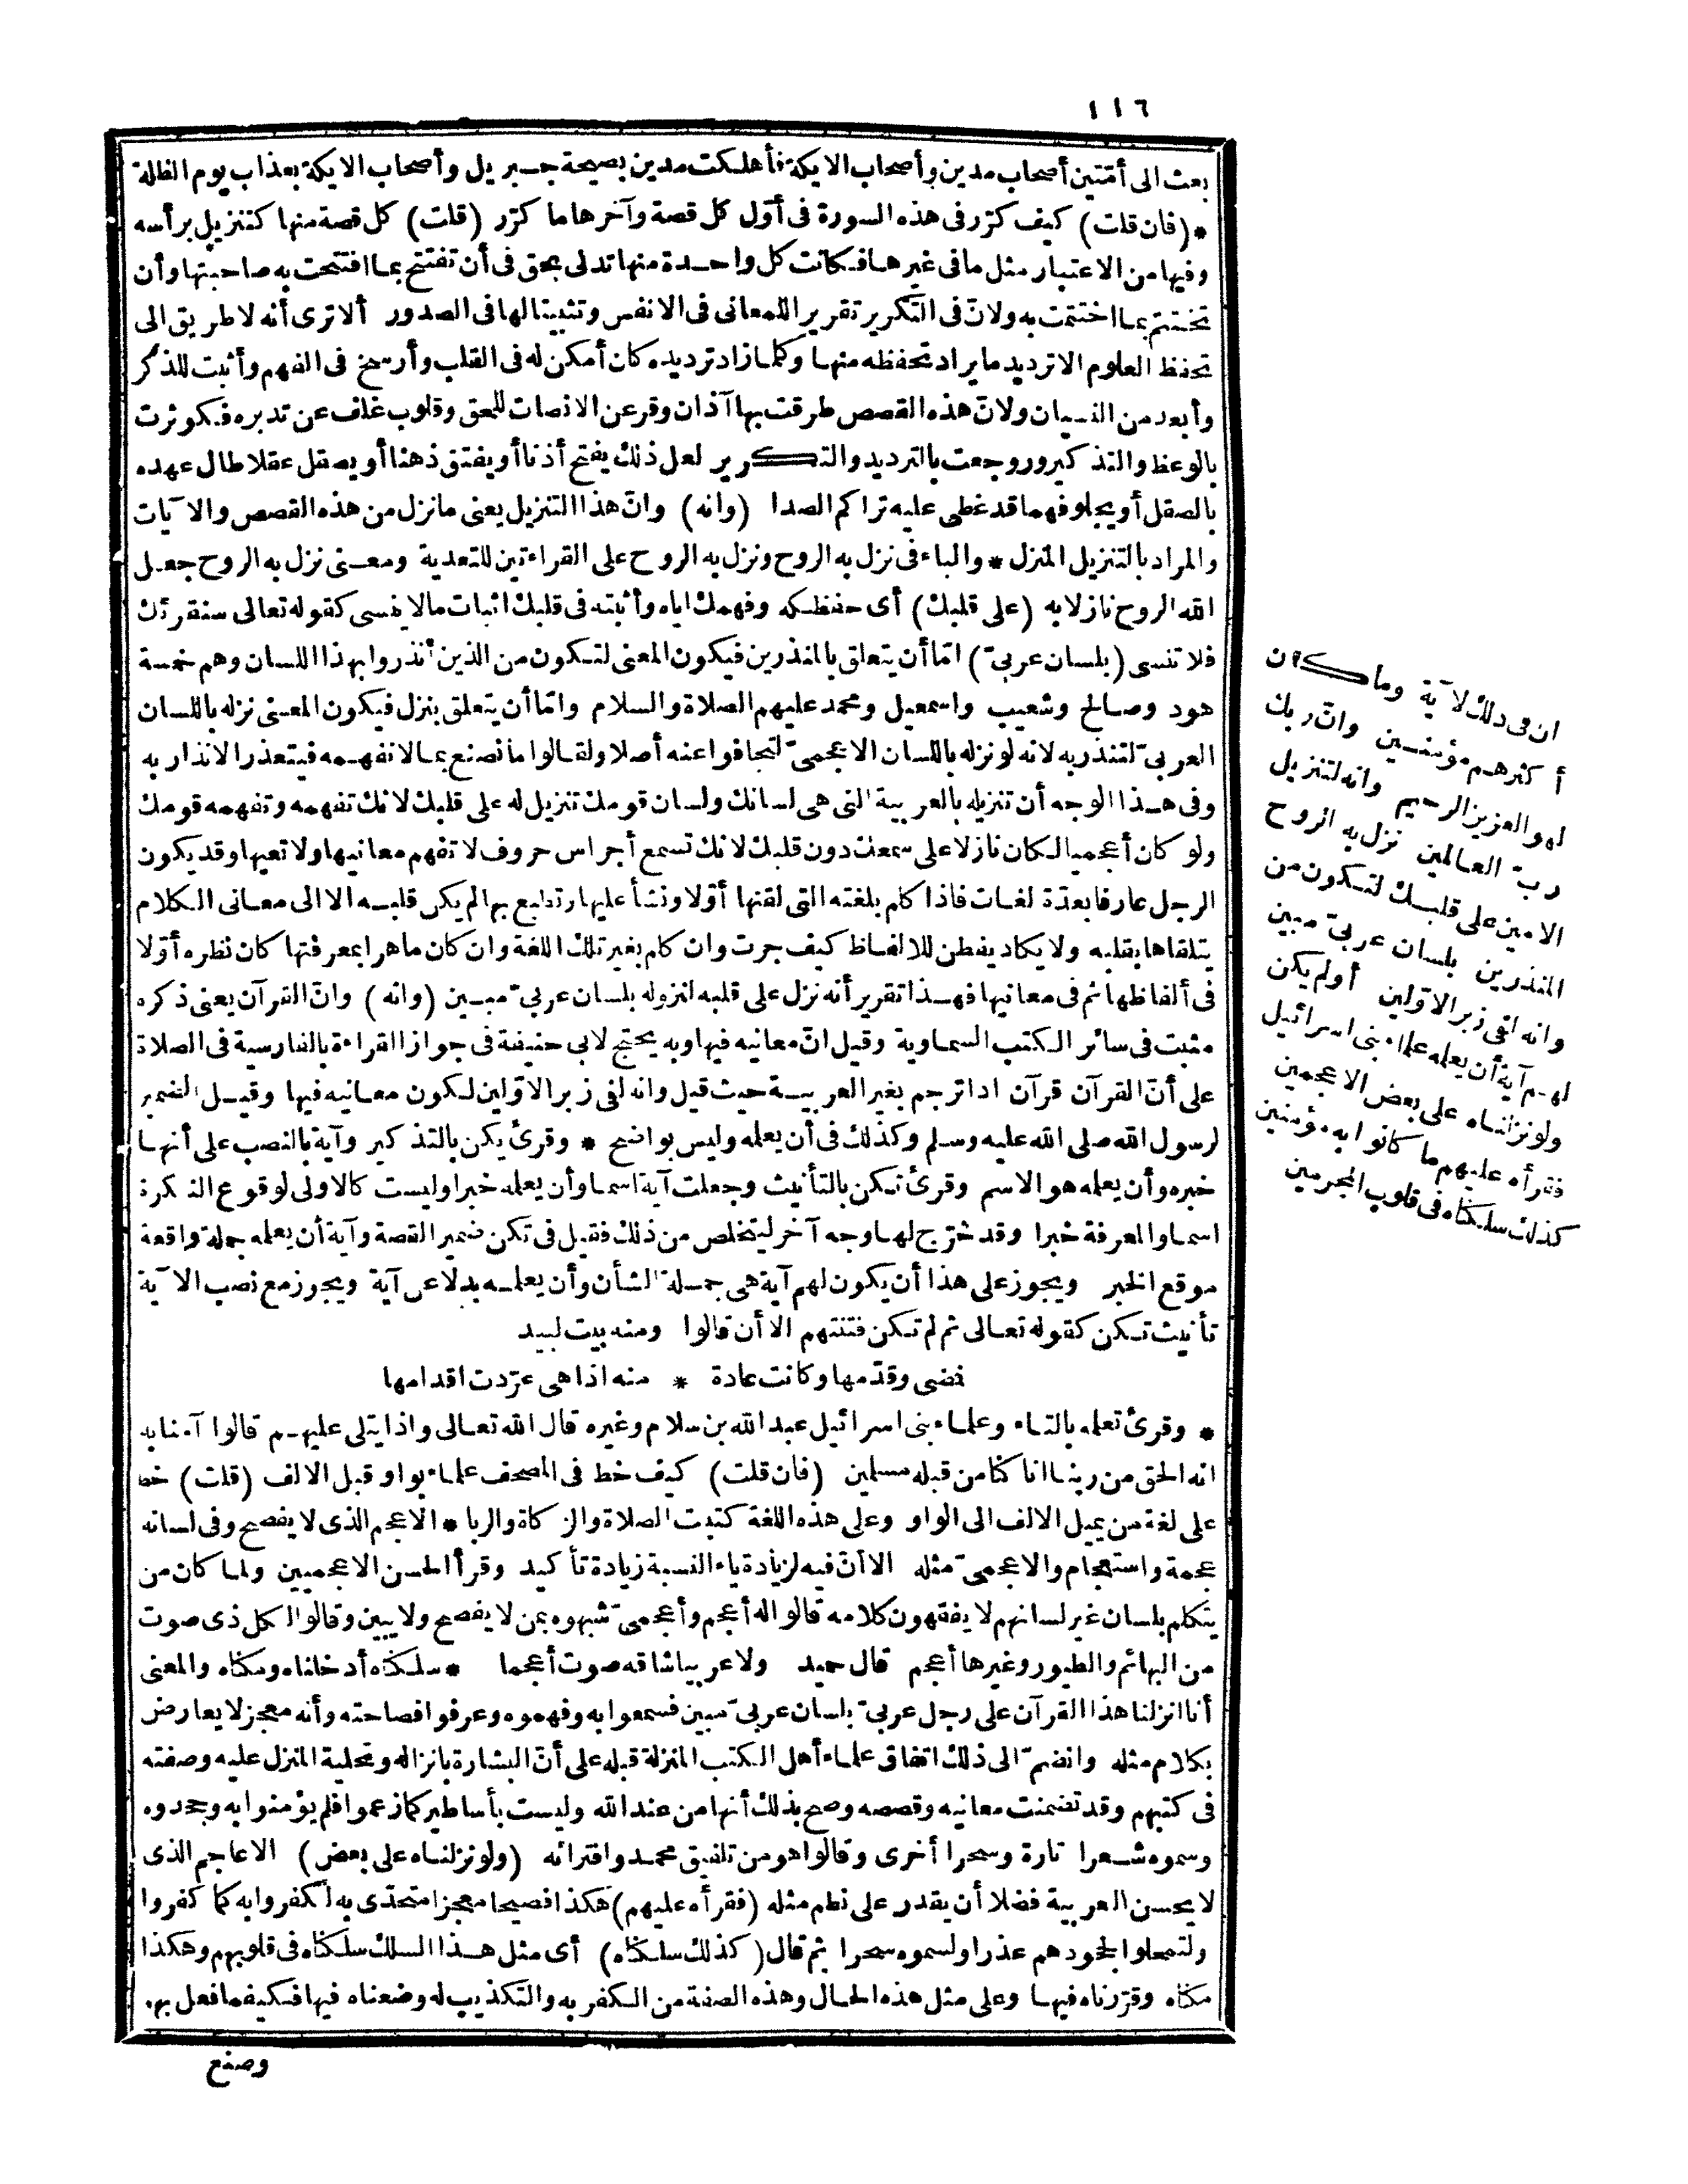 ١١٦
بعث الى أمّتين أصحاب مدين وأصحاب الايكة فأهلكت مدين بصيحة جبريل وأصحاب الايكة بعذاب يوم الظلة
* (فان قلت) كيف كرّر فى هذه السورة فى أوّل كل قصة وآخرها ما كرّر (قلت) كل قصة منها كتنزيل برأسه
وفيها من الاعتبار مثل ما فى غيرها فكانت كل واحدة منها تدلى بحق فى أن تفتتح بما افتتحت به صاحبتها وأن
تختتم بما اختتمت به ولانّ فى التكرير تقريرا للمعانى فى الانفس وتثبيتا لها فى الصدور ألا ترى أنه لا طريق الى
تحفظ العلوم الا ترديد ما يراد تحفظه منها وكلما زاد ترديده كان أمكن له فى القلب وأرسخ فى الفهم وأثبت للذكر
وأبعد من النسيان ولانّ هذه القصص طرقت بها آذان وقر عن الانصات للحق وقلوب غلف عن تدبره فكوثرت
بالوعظ والتذكير وروجعت بالترديد والتكرير لعل ذلك يفتح أذنا أو يفتق ذهنا أو يصقل عقلا طال عهده
بالصقل أو يجلو فهما قد غطى عليه تراكم الصدا (وانه) وانّ هذا التنزيل يعنى ما نزل من هذه القصص والآيات
والمراد بالتنزيل المنزل * والباء فى نزل به الروح ونزل به الروح على القراءتين للتعدية ومعنى نزل به الروح جعل
الله الروح نازلا به (على قلبك) أى حفظكه وفهمك اياه وأثبته فى قلبك اثبات ما لا ينسى كقوله تعالى سنقرئك
فلا تنسى (بلسان عربىّ) امّا أن يتعلق بالمنذرين فيكون المعنى لتكون من الذين أنذروا بهذا اللسان وهم خمسة
هود وصالح وشعيب واسمعيل ومحمد عليهم الصلاة والسلام وامّا أن يتعلق بنزل فيكون المعنى نزله باللسان
العربىّ لتنذر به لانه لو نزله باللسان الاعجمىّ لتجافوا عنه أصلا ولقالوا ما نصنع بما لا نفهمه فيتعذر الانذار به
وفى هذا الوجه أن تنزيله بالعربية التى هى لسانك ولسان قومك تنزيل له على قلبك لانك تفهمه وتفهمه قومك
ولو كان أعجميا لكان نازلا على سمعك دون قلبك لانك تسمع أجراس حروف لا تفهم معانيها ولا تعيها وقد يكون
الرجل عارفا بعدّة لغات فاذا كلم بلغته التى لقنها أوّلا ونشأ عليها وتطبع بها لم يكن قلبه الا الى معانى الكلام
يتلقاها بقلبه ولا يكاد يفطن للالفاظ كيف جرت وان كلم بغير تلك اللغة وان كان ماهرا بمعرفتها كان نظره أوّلا
فى ألفاظها ثم فى معانيها فهذا تقرير أنه نزل على قلبه لنزوله بلسان عربىّ مبين (وانه) وانّ القرآن يعنى ذكره
مثبت فى سائر الكتب السماوية وقيل انّ معانيه فيها وبه يحتج لابى حنيفة فى جواز القراءة بالفارسية فى الصلاة
على أنّ القرآن قرآن اذا ترجم بغير العربية حيث قيل وانه لفى زبر الاوّلين لكون معانيه فيها وقيل الضمير
لرسول الله صلى الله عليه وسلم وكذلك فى أن يعلمه وليس بواضح * وقرئ يكن بالتذكير وآية بالنصب على أنها
خبره وأن يعلمه هو الاسم وقرئ تكن بالتأنيث وجعلت آية اسما وأن يعلمه خبرا وليست كالاولى لوقوع النكرة
اسما والمعرفة خبرا وقد خرّج لها وجه آخر ليتخلص من ذلك فقيل فى تكن ضمير القصة وآية أن يعلمه جملة واقعة
موقع الخبر ويجوز على هذا أن يكون لهم آية هى جملة الشأن وأن يعلمه بدلا عن آية ويجوز مع نصب الآية
تأنيث تكن كقوله تعالى ثم لم تكن فتنتهم الا أن قالوا ومنه بيت لبيد
فمضى وقدّمها وكانت عادة * منه اذا هى عرّدت اقدامها
* وقرئ تعلمه بالتاء وعلماء بنى اسرائيل عبد الله بن سلام وغيره قال الله تعالى واذا يتلى عليهم قالوا آمنا به
انه الحق من ربنا انا كنا من قبله مسلمين (فان قلت) كيف خط فى المصحف علماء بواو قبل الالف (قلت) خط
على لغة من يميل الالف الى الواو وعلى هذه اللغة كتبت الصلاة والزكاة والربا * الاعجم الذى لا يفصح وفى لسانه
عجمة واستعجام والاعجمىّ مثله الا أنّ فيه لزيادة ياء النسبة زيادة تأكيد وقرأ الحسن الاعجميين ولما كان من
يتكلم بلسان غير لسانهم لا يفقهون كلامه قالوا له أعجم وأعجمىّ شبهوه بمن لا يفصح ولا يبين وقالوا لكل ذى صوت
من البهائم والطيور وغيرها أعجم قال حميد ولا عربيا شاقه صوت أعجما * سلكناه أدخلناه ومكناه والمعنى
أنا انزلنا هذا القرآن على رجل عربىّ بلسان عربىّ مبين فسمعوا به وفهموه وعرفوا فصاحته وأنه معجز لا يعارض
بكلام مثله وانضمّ الى ذلك اتفاق علماء أهل الكتب المنزلة قبله على أنّ البشارة بانزاله وتحلية المنزل عليه وصفته
فى كتبهم وقد تضمنت معانيه وقصصه وصح بذلك أنها من عند الله وليست بأساطير كما زعموا فلم يؤمنوا به وجحدوه
وسموه شعرا تارة وسحرا أخرى وقالوا هو من تلفيق محمد وافترائه (ولو نزلناه على بعض) الاعاجم الذى
لا يحسن العربية فضلا أن يقدر على نظم مثله (فقرأه عليهم) هكذا فصيحا معجزا متحدّى به لكفروا به كما كفروا
ولتمحلوا لجحودهم عذرا ولسموه سحرا ثم قال (كذلك سلكناه) أى مثل هذا السلك سلكناه فى قلوبهم وهكذا
مكناه وقرّرناه فيها وعلى مثل هذه الحال وهذه الصفة من الكفر به والتكذيب له وضعناه فيها فكيفما فعل بهم
وصنع
ان فى ذلك لآية وما كان
أكثرهم مؤمنين وانّ ربك
لهو العزيز الرحيم وانه لتنزيل
ربّ العالمين نزل به الروح
الامين على قلبك لتكون من
المنذرين بلسان عربىّ مبين
وانه لفى زبر الاوّلين أولم يكن
لهم آية أن يعلمه علماء بنى اسرائيل
ولو نزلناه على بعض الاعجمين
فقرأه عليهم ما كانوا به مؤمنين
كذلك سلكناه فى قلوب المجرمين